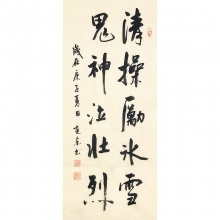 清操厲冰雪
鬼神泣壯烈
歲在庚子夏日